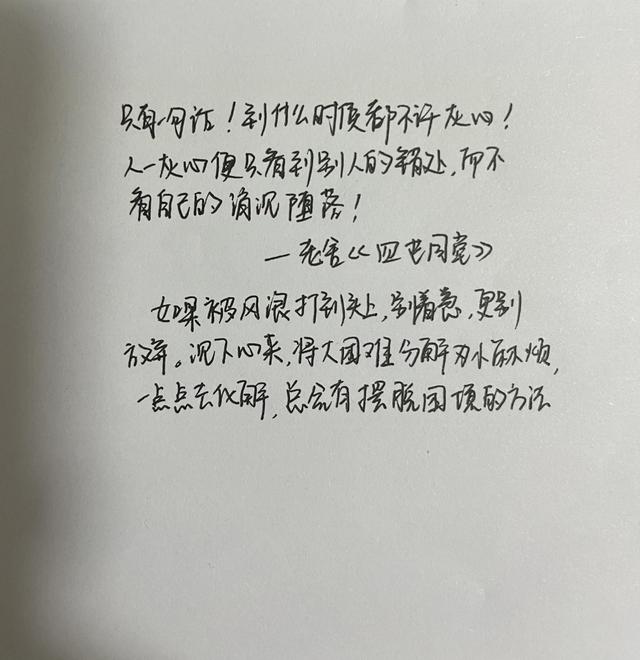 只有一句话！到什么时侯都不许灰心！
人一灰心便只看到别人的错处，而不
看自己的消沉堕落！
—老舍《四世同堂》
如果被风浪打到头上，别着急，更别
放弃。沉下心来，将大困难分解为小麻烦，
一点点去化解，总会有摆脱困境的方法